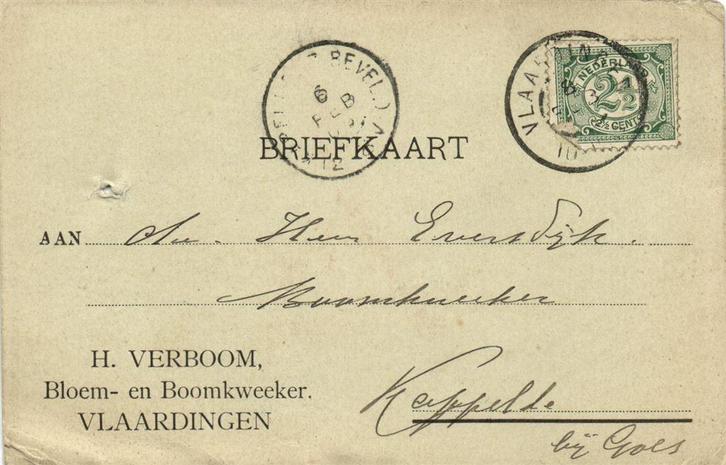 BEVEL.)
6 FEB
VLAARDIN
NEDERLAND
2½
2½ CENT
BRIEFKAART
AAN Heer Eversdijk.
Boomkweeker
H. VERBOOM,
Bloem- en Boomkweeker.
VLAARDINGEN
Kappelde
bij Goes